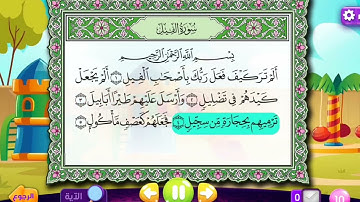 سُورَةُ الفِيلِ
بِسْمِ اللَّهِ الرَّحْمَٰنِ الرَّحِيمِ
أَلَمْ تَرَ كَيْفَ فَعَلَ رَبُّكَ بِأَصْحَابِ الْفِيلِ ١ أَلَمْ يَجْعَلْ
كَيْدَهُمْ فِي تَضْلِيلٍ ٢ وَأَرْسَلَ عَلَيْهِمْ طَيْرًا أَبَابِيلَ ٣
تَرْمِيهِم بِحِجَارَةٍ مِّن سِجِّيلٍ ٤ فَجَعَلَهُمْ كَعَصْفٍ مَّأْكُولٍ ٥
الرجوع
الآية
0
10